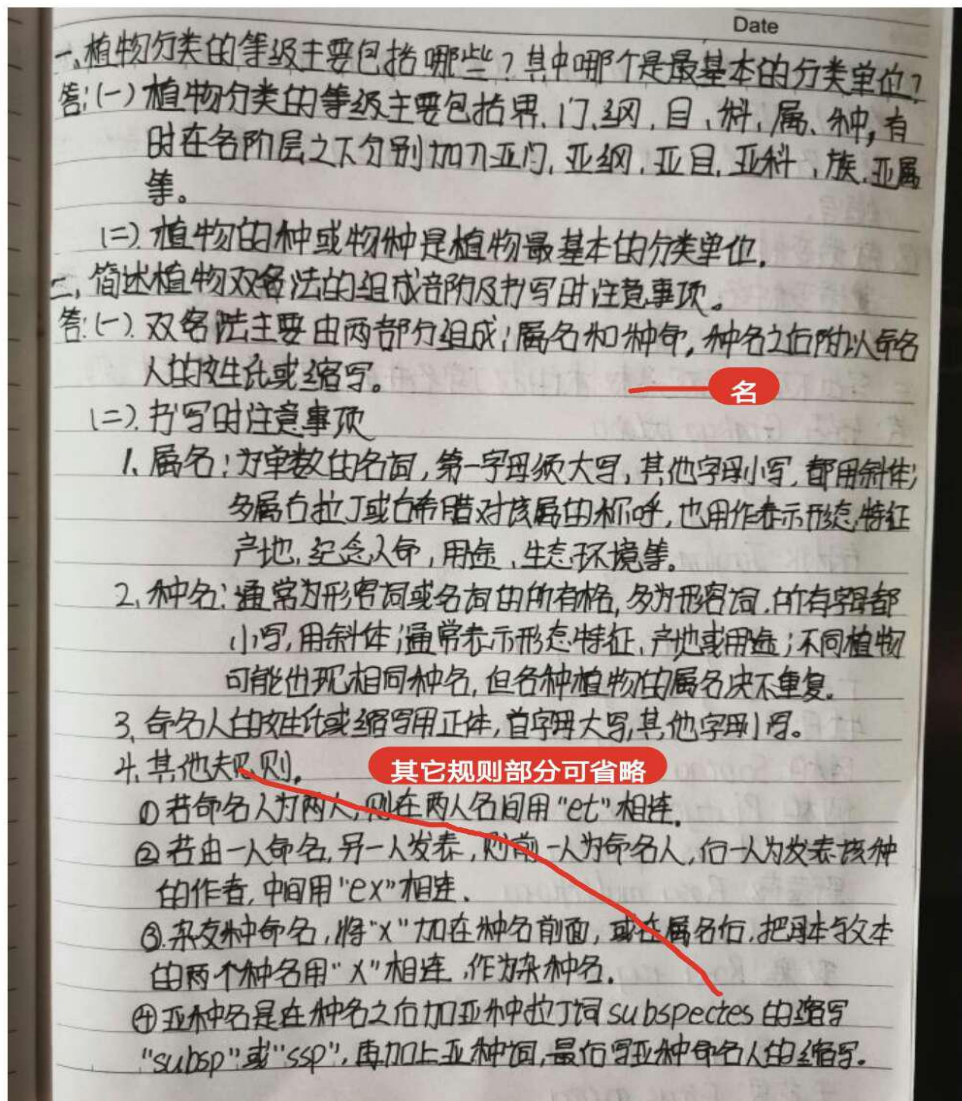 Date
一、植物分类的等级主要包括哪些？其中哪个是最基本的分类单位？
答：(一) 植物分类的等级主要包括界、门、纲、目、科、属、种，有
时在各阶层之下分别加入亚门，亚纲，亚目，亚科、族、亚属
等。
(二) 植物的种或物种是植物最基本的分类单位。
二、简述植物双名法的组成部分及书写时注意事项。
答：(一). 双名法主要由两部分组成；属名和种命，种名之后附以命名
人的姓氏或缩写。
名
(二). 书写时注意事项
1、属名：为单数的名词，第一字母须大写，其他字母小写，都用斜体；
多属古拉丁或古希腊对该属的称呼，也用作表示形态特征
产地，纪念人命，用途、生态环境等。
2、种名：通常为形容词或名词的所有格，多为形容词，所有字母都
小写，用斜体；通常表示形态特征、产地或用途；不同植物
可能出现相同种名，但各种植物的属名决不重复。
3、命名人的姓氏或缩写用正体，首字母大写，其他字母小写。
4、其他规则。
其它规则部分可省略
①若命名人为两人，则在两人名间用“et”相连。
②若由一人命名，另一人发表，则前一人为命名人，后一人为发表该种
的作者，中间用“ex”相连．
③．杂交种命名，将“X”加在种名前面，或在属名后，把母本与父本
的两个种名用“X”相连，作为杂种名．
④亚种名是在种名之后加亚种拉丁词subspectes的缩写
“subsp”或“ssp”，再加上亚种词，最后写亚种命名人的缩写。